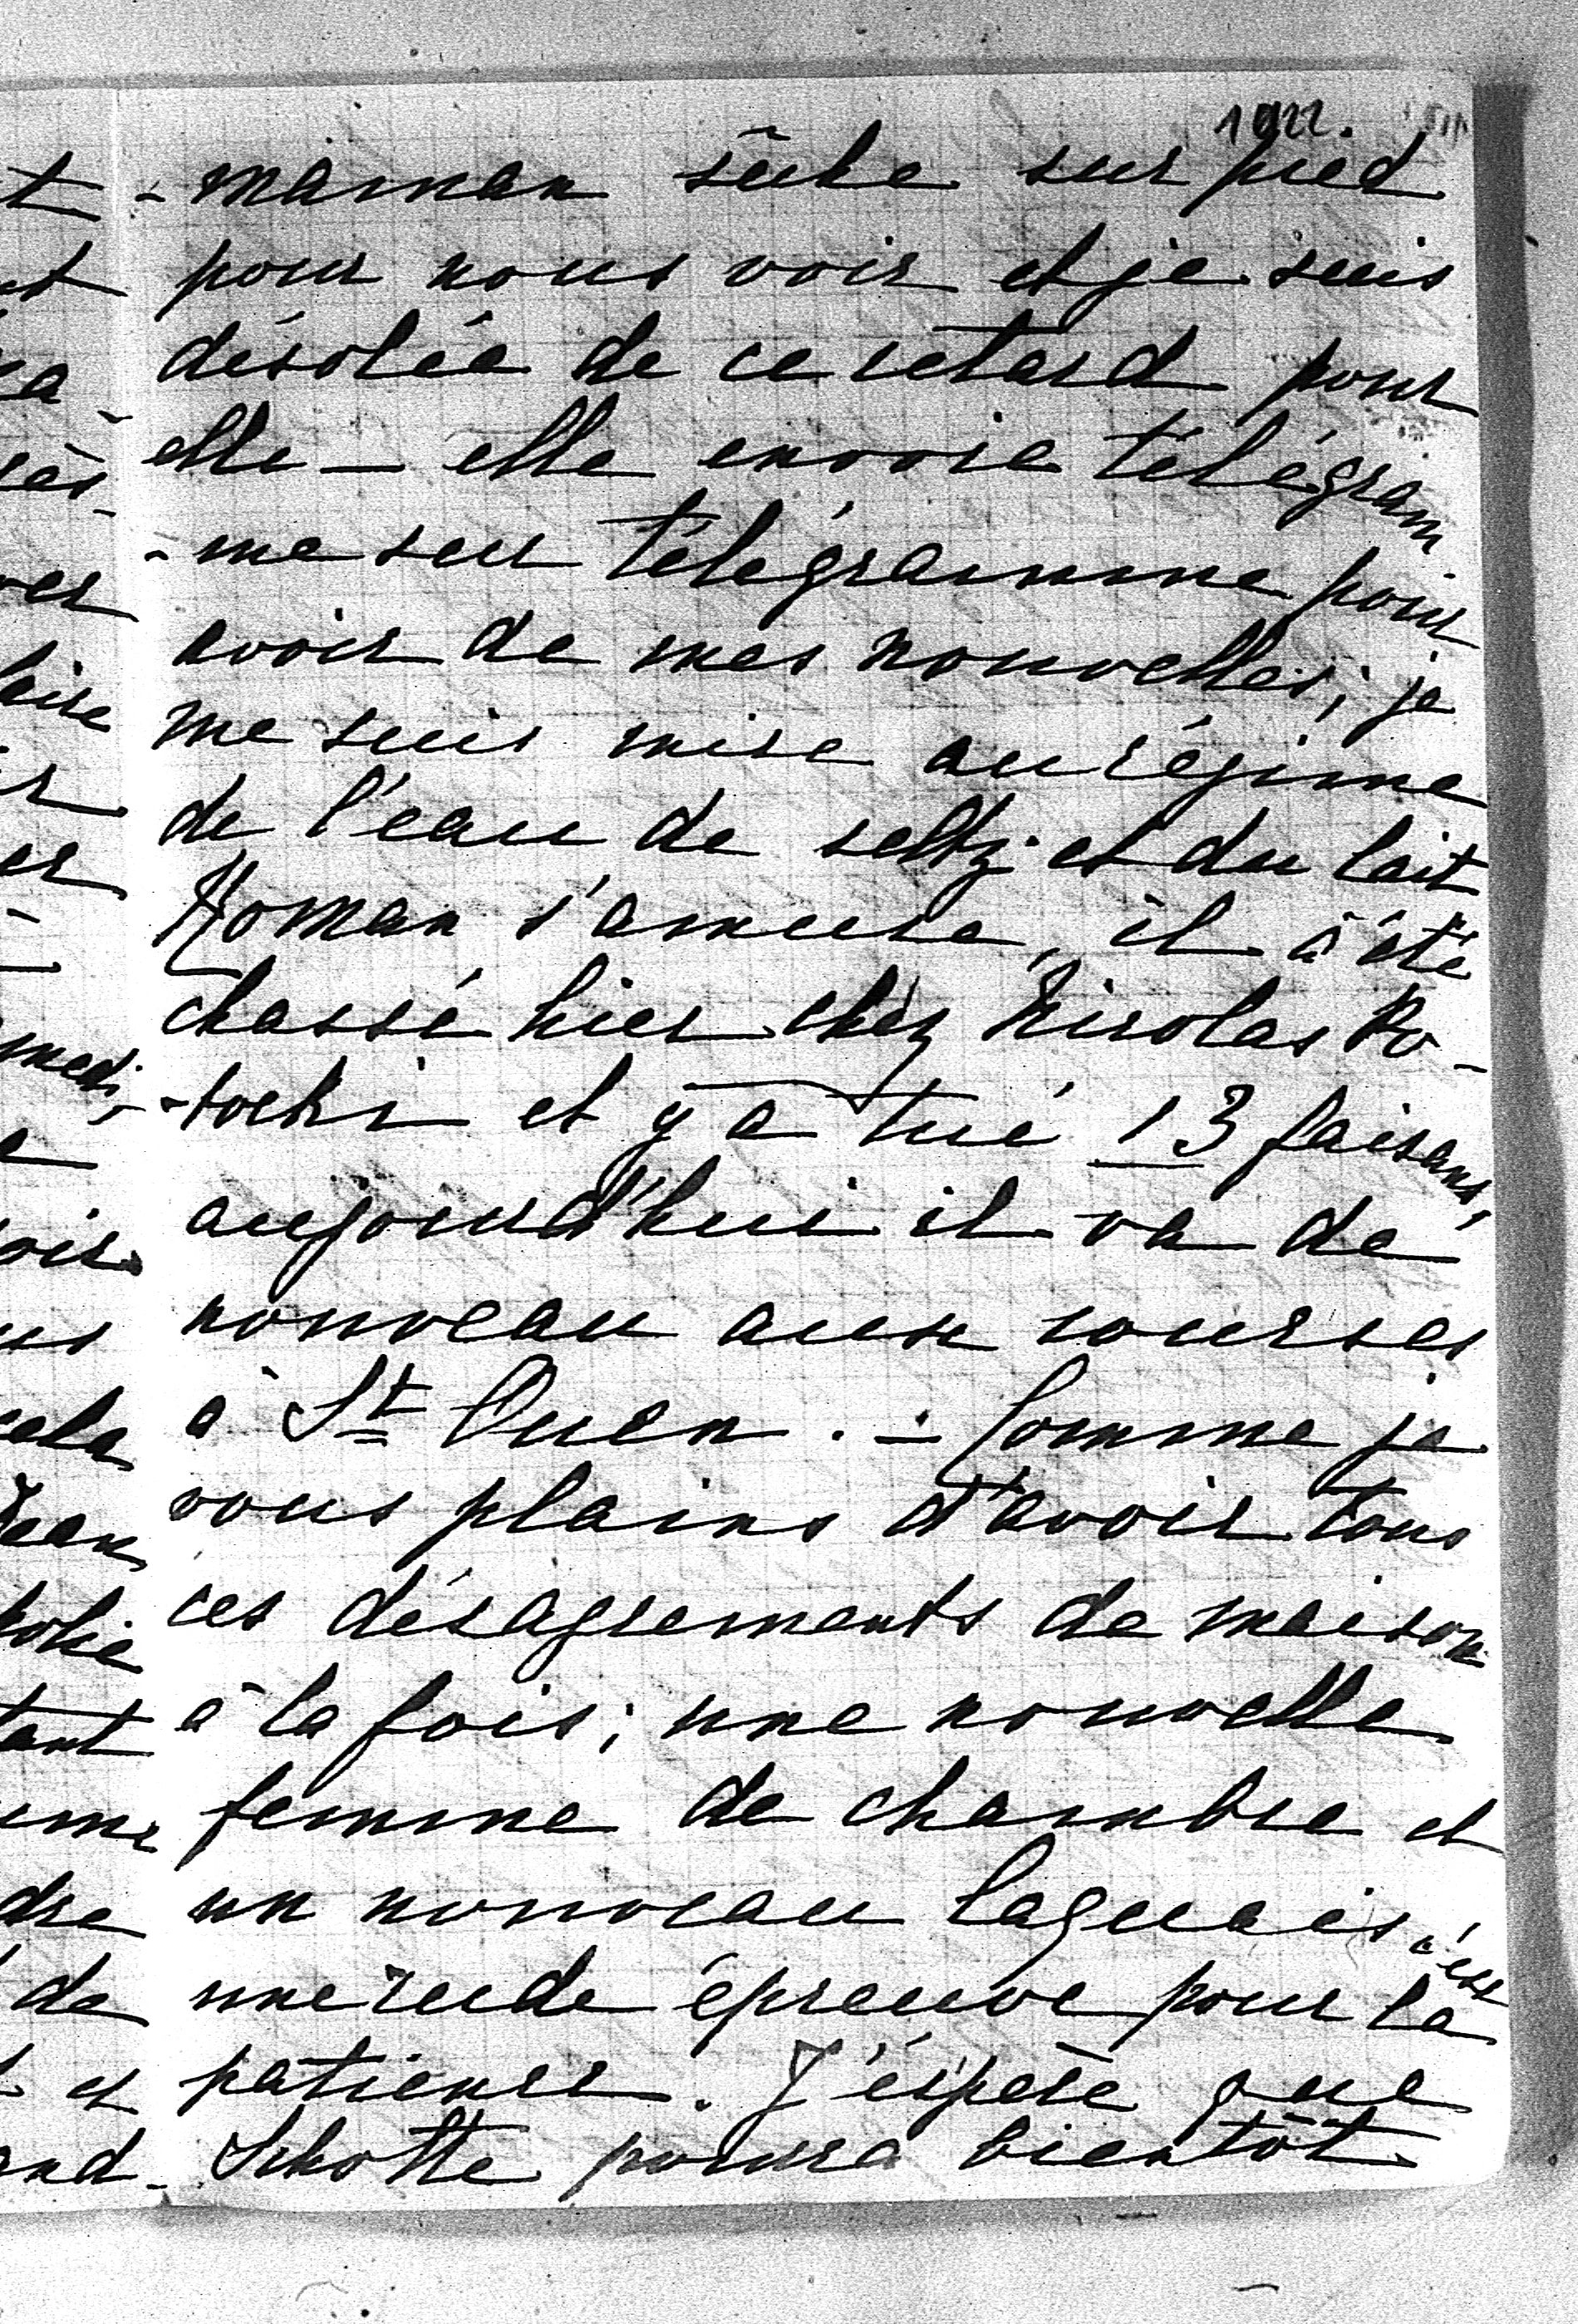 1022.
-maman sèche sur pied
pour nous voir et je suis
désolée de ce retard pour
elle — elle envoie télégram
-me sur télégramme pour
avoir de mes nouvelles; je
me suis mise au régime
de l'eau de seltz et du lait
Roman s'amuse, il a été
chassé hier chez Nicolas Po-
-tocki et y a tué 13 faisans,
aujourd'hui il va de
nouveau aux courses
à St Ouen. - Comme je
vous plains d'avoir tous
ces désagrements de maison
à la fois; une nouvelle
femme de chambre et
un nouveau laquais, c'est
une rude épreuve pour la
patience. J'éspère que
Schotte pourra bientôt